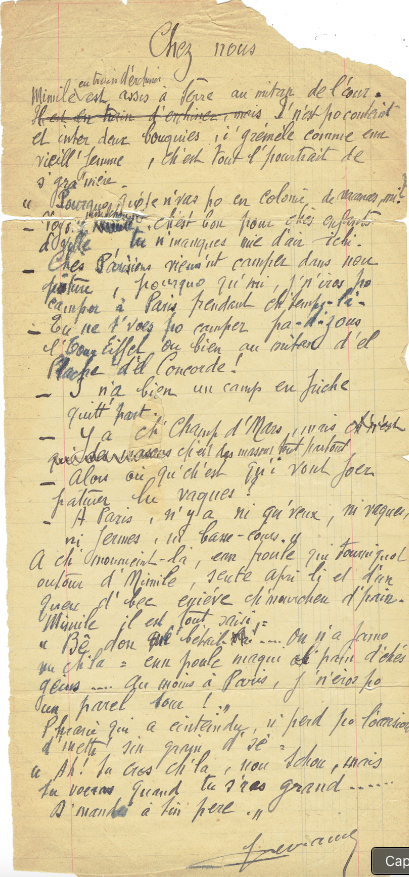 Chez nous
en train d'échiner
Mimile est assis à terre au mitan de l'cour.
Il est en train d'échiner, mais I n'est po contint
et inter deux bouquies, i gremele comme enn
vieill' femme, ch'est tout l'pourtrait de
s'gra'mère.
" Pourquoi n'vas po en colonie de vacances,
ch'est bon pour ches infants
d'ville tu n'manques mie d'air ichi.
— Ches Parisiens viennt camper dans nou
pâture, pourquo qu'mi, j'n'iros po
camper à Paris pendant ch'temps-là.
— Tu ne t'vois po camper pa-d'zous
l'Tour Eiffel ou bien au mitan d'el
Plache d'El Concorde !
— I n'a bien un camp en friche
quitt' part.
— Y a ch' Champ d'Mars, mais ch'n'est
ch'est des masons tout partout
— Alors où qu'ch'est qu'i vont foer
paturer lu vaques ?
— A Paris, n'y a ni qu'veux, ni vaques,
ni fermes, ni basse-cours. "
A ch'moumeint-là, enn poule qui tournoguot
autour d'Mimile, seute apri li et d'un
queu d'bec enlève ch'mourcheu d'pain.
Mimile il est tout saisi :
" Bé don bétail .... On n'a jamo
vu ch'la : enn poule maquer ch'pain d'ches
gens .... Au moins à Paris, j'n'eros po
un parel tour ! "
qui a eintendu, n'perd po l'occasion
d'mett' sin grain d'sé :
" Ah ! tu cros ch'la, nou tchou, mais
tu voeras quand tu s'ras grand ......
D'mande à tin père. "
Cap